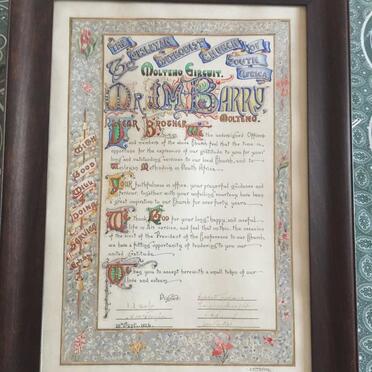 THE WESLEYAN METHODIST CHURCH OF SOUTH AFRICA
MOLTENO CIRCUIT.
DR J.M. BARRY,
MOLTENO.
DEAR BROTHER,
We the undersigned Officers
and members of the above Church feel that the time is
opportune for the expression of our gratitude to you for your
long and outstanding services to our local Church, and to
Wesleyan Methodism in South Africa.
Your faithfulness in office, your prayerful guidance and
your unfailing courtesy have been
a great inspiration to our Church for over forty years.
We Thank God for your long, happy, and useful
life in His service, and feel that the occasion
of the visit of the President of the Conference to our Church,
we have a fitting opportunity of tendering to you our
united gratitude.
We beg you to accept herewith a small token of our
love and esteem.
Signed
WITH
GOOD
WILL
DOING
SERVICE